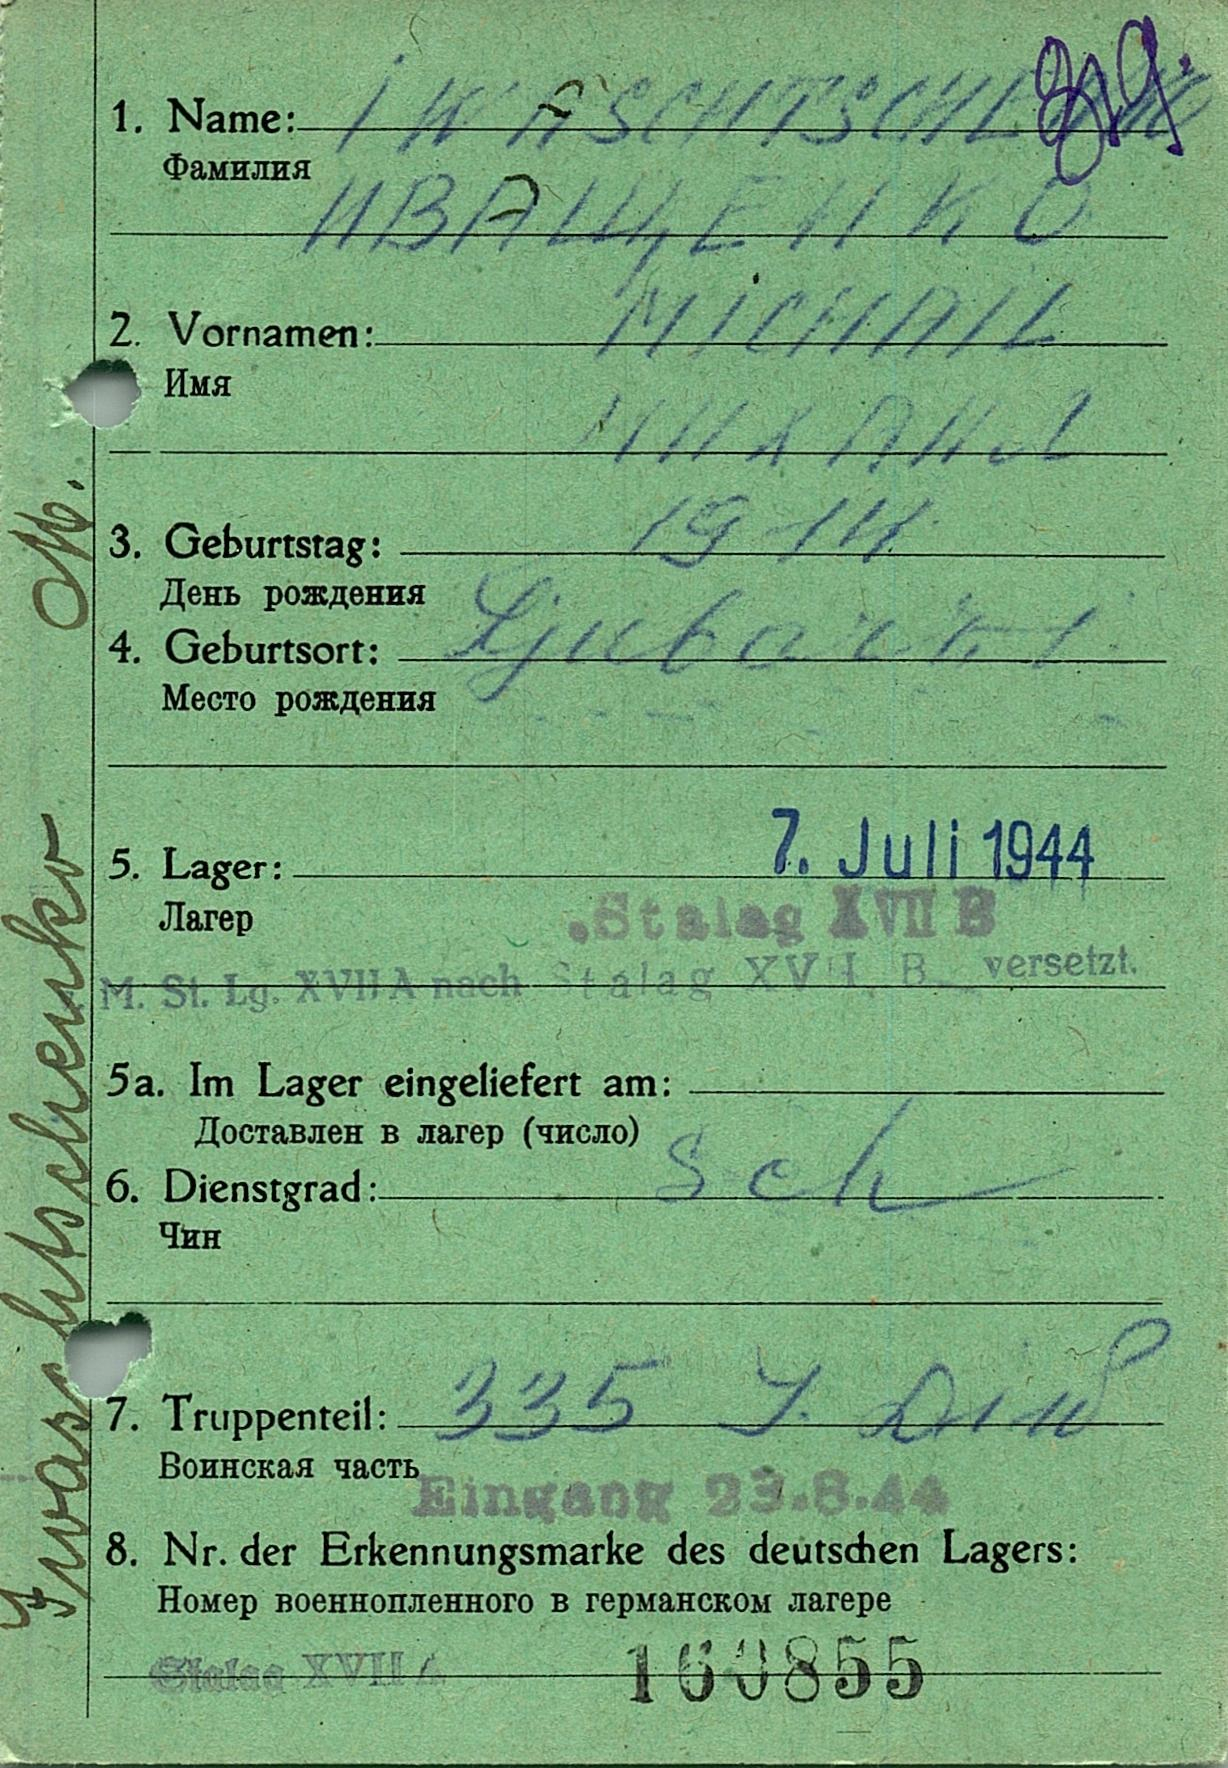 1. Name: IWASCHTSCHENKO
Фамилия
ИВАЩЕНКО
2. Vornamen: MICHAIL
Имя
МИХАИЛ
3. Geburtstag: 1914
День рождения
4. Geburtsort:
Место рождения
7. Juli 1944
5. Lager:
Лагер
Stalag XVII B
M. St. Lg. XVII A nach Stalag XVII B versetzt.
5a. Im Lager eingeliefert am:
Доставлен в лагер (число)
6. Dienstgrad: Sch
Чин
7. Truppenteil: 335 J. Div
Воинская часть
Eingang 23.8.44
8. Nr. der Erkennungsmarke des deutschen Lagers:
Номер военнопленного в германском лагере
Stalag XVII A 160855
Iwaschtschenko M.